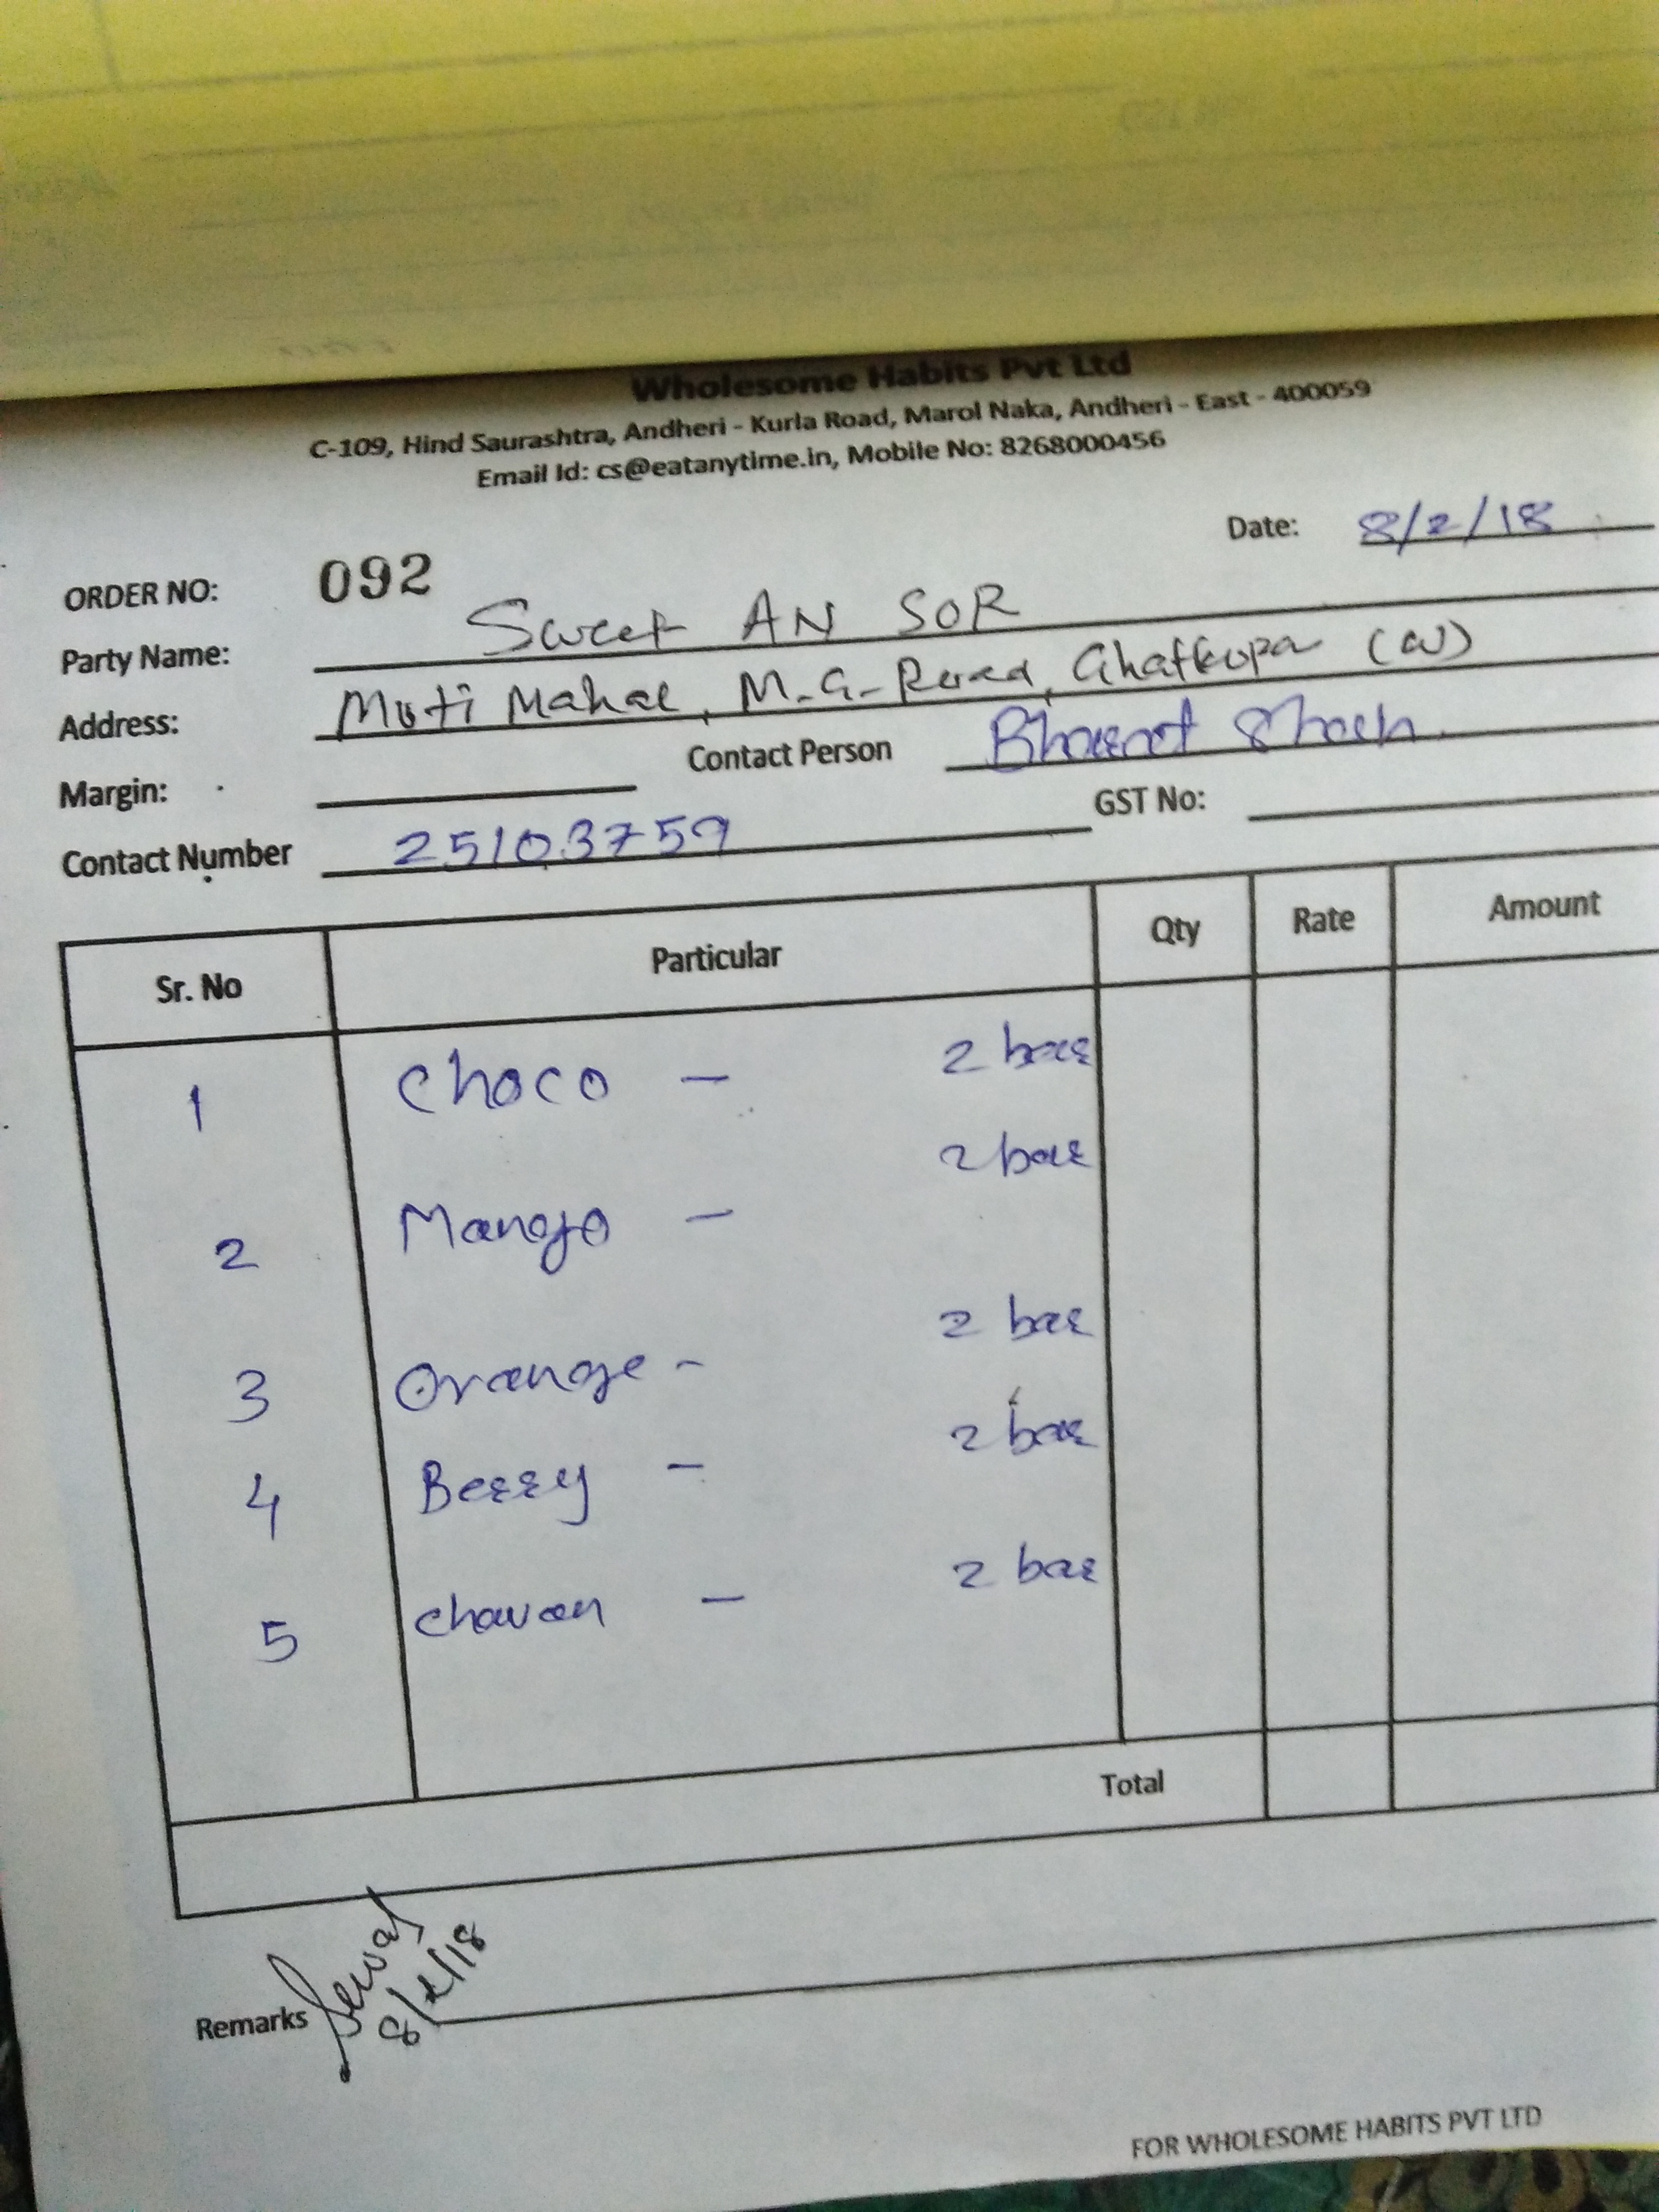 Wholesome Habits Pvt Ltd
C-109, Hind Saurashtra, Andheri - Kurla Road, Marol Naka, Andheri - East - 400059
Email Id: cs@eatanytime.in, Mobile No: 8268000456
Date: 8/2/18
ORDER NO: 092
Party Name: Sweet AN SOR
Address: Moti Mahal, M.G. Road, Ghatkopar (W)
Margin: Contact Person Bharat Shah
Contact Number 25103759 GST No:
Sr. No Particular Qty Rate Amount
1 Choco - 2 box
2 Mango - 2 box
3 Orange - 2 box
4 Berry - 2 box
5 chawan - 2 box
Total
Remarks 8/2/18
FOR WHOLESOME HABITS PVT LTD